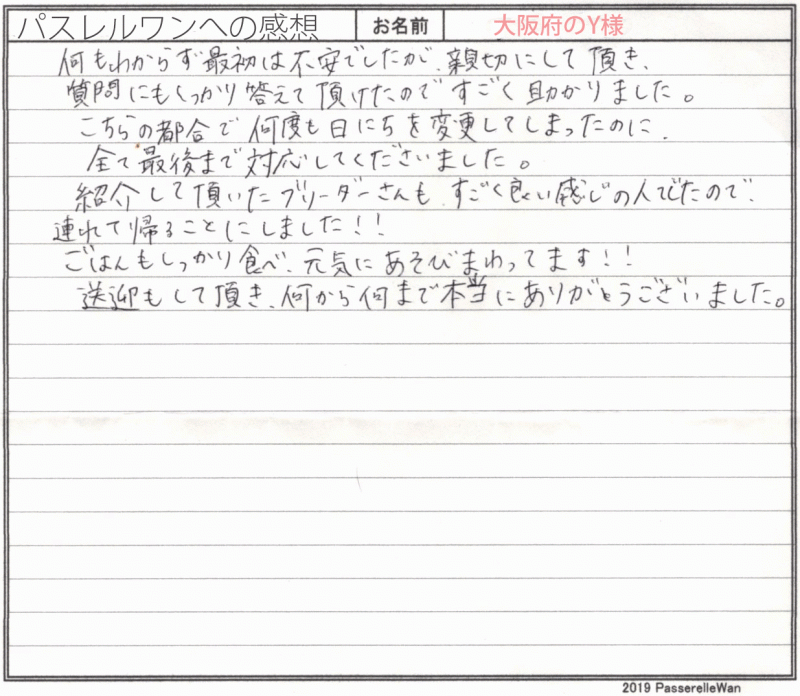 パスレルワンへの感想 お名前 大阪府のY様
何もわからず最初は不安でしたが、親切にして頂き、
質問にもしっかり答えて頂けたのですごく助かりました。
こちらの都合で何度も日にちを変更してしまったのに、
全て最後まで対応してくださいました。
紹介して頂いたブリーダーさんも、すごく良い感じの人でしたので、
連れて帰ることにしました!!
ごはんもしっかり食べ、元気にあそびまわってます!!
送迎もして頂き、何から何まで本当にありがとうございました。
2019 PasserelleWan